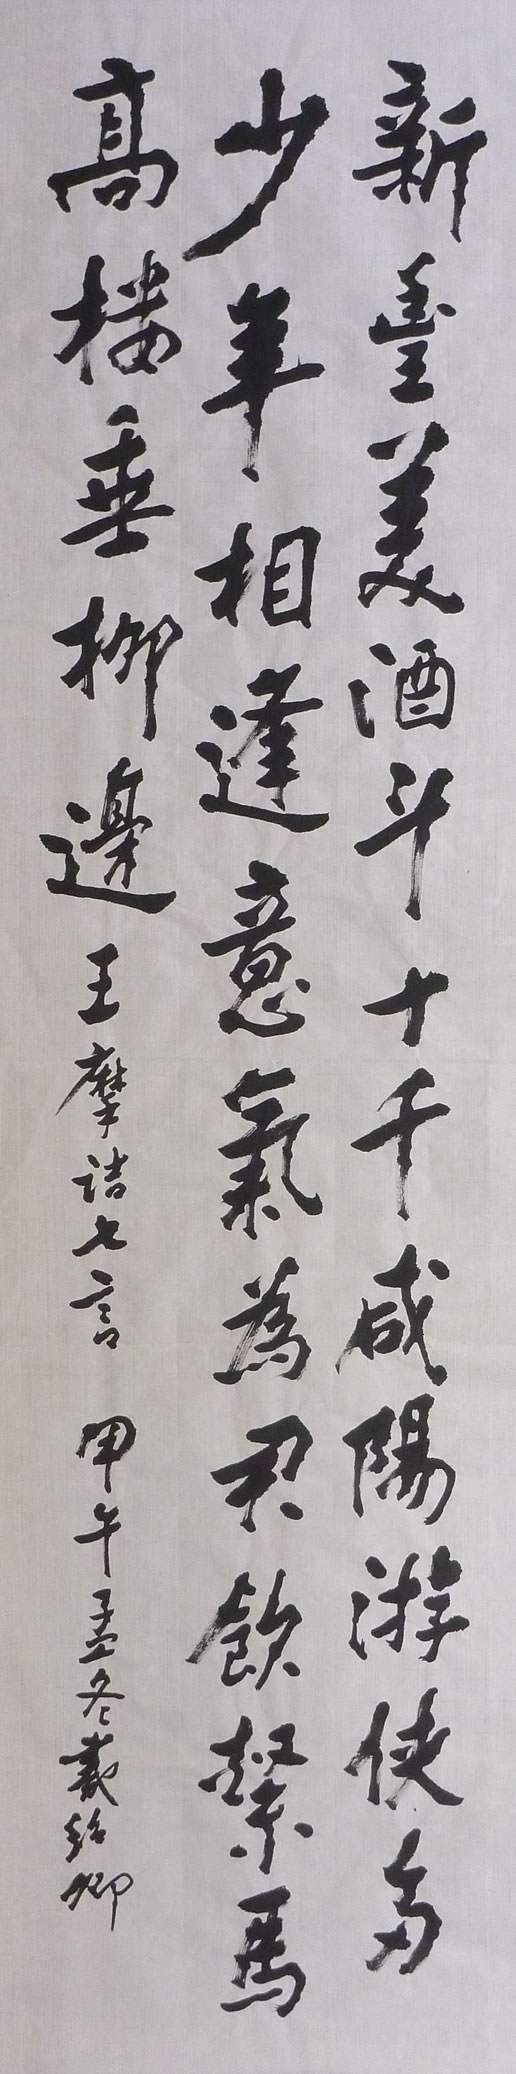 新豐美酒斗十千咸陽游俠多
少年相逢意氣為君飲繫馬
高樓垂柳邊
王摩詰七言 甲午孟冬戴紹卿